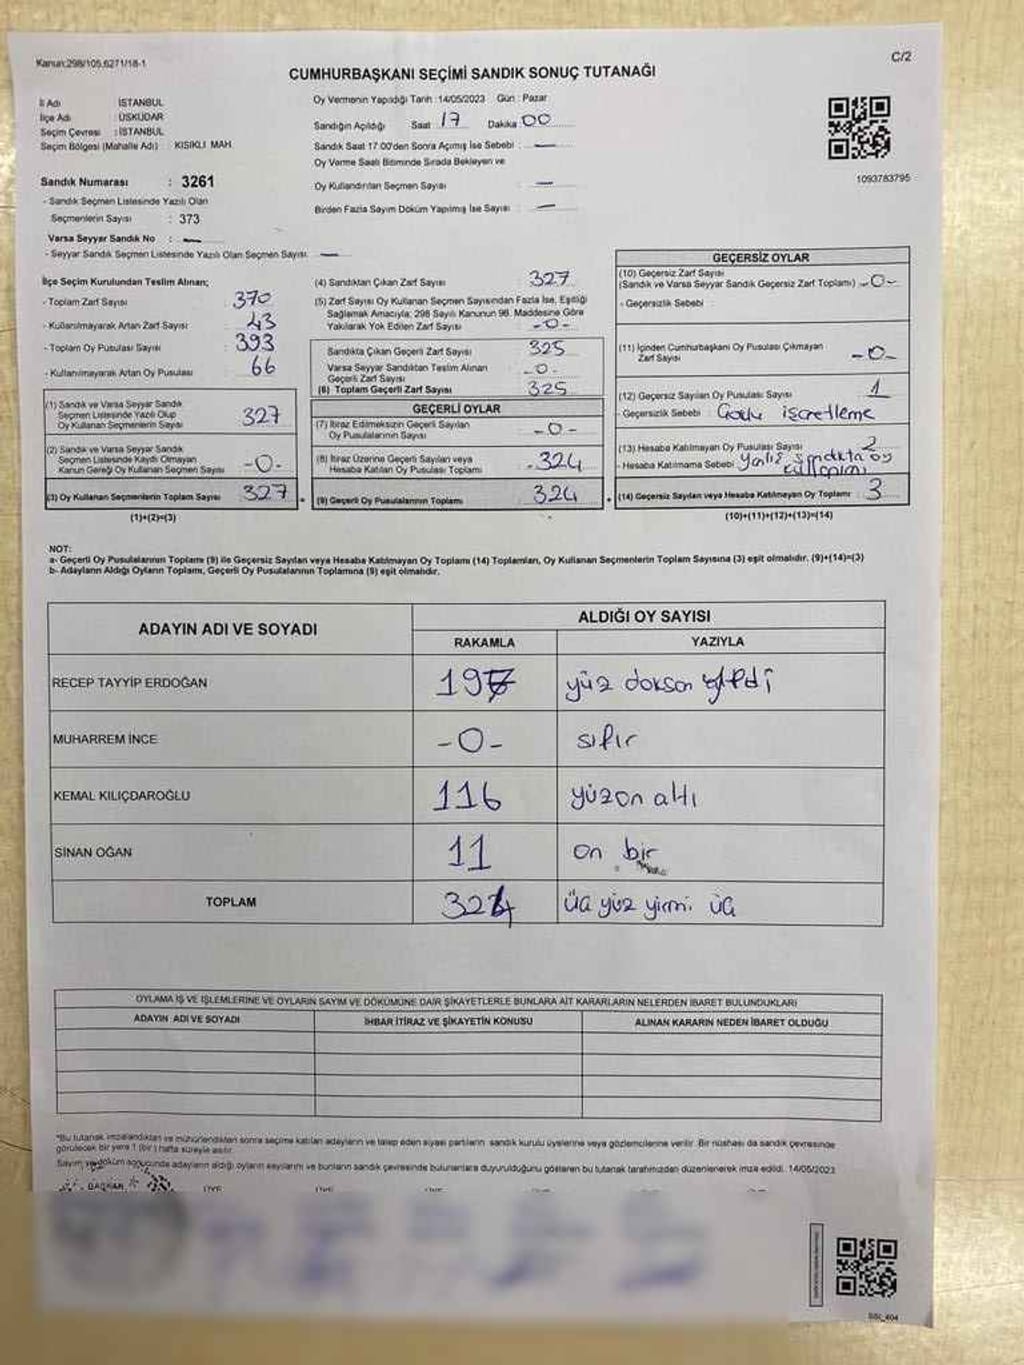 Kanun:298/105,6271/18-1
C/2
CUMHURBAŞKANI SEÇİMİ SANDIK SONUÇ TUTANAĞI
İl Adı : İSTANBUL
İlçe Adı : ÜSKÜDAR
Seçim Çevresi : İSTANBUL
Seçim Bölgesi (Mahalle Adı) : KISIKLI MAH.
Sandık Numarası : 3261
- Sandık Seçmen Listesinde Yazılı Olan
Seçmenlerin Sayısı : 373
Varsa Seyyar Sandık No : —
- Seyyar Sandık Seçmen Listesinde Yazılı Olan Seçmen Sayısı: —
Oy Vermenin Yapıldığı Tarih :14/05/2023 Gün : Pazar
Sandığın Açıldığı Saat 17 Dakika 00
Sandık Saat 17:00'den Sonra Açımış İse Sebebi : —
Oy Verme Saati Bitiminde Sırada Bekleyen ve
Oy Kullandırılan Seçmen Sayısı : —
Birden Fazla Sayım Döküm Yapılmış İse Sayısı : —
1093783795
İlçe Seçim Kurulundan Teslim Alınan;
- Toplam Zarf Sayısı 370
- Kullanılmayarak Artan Zarf Sayısı 43
- Toplam Oy Pusulası Sayısı 393
- Kullanılmayarak Artan Oy Pusulası 66
(1) Sandık ve Varsa Seyyar Sandık
Seçmen Listesinde Yazılı Olup
Oy Kullanan Seçmenlerin Sayısı 327
(2) Sandık ve Varsa Seyyar Sandık
Seçmen Listesinde Kaydı Olmayan
Kanun Gereği Oy Kullanan Seçmen Sayısı -0-
(3) Oy Kullanan Seçmenlerin Toplam Sayısı 327
(1)+(2)=(3)
(4) Sandıktan Çıkan Zarf Sayısı 327
(5) Zarf Sayısı Oy Kullanan Seçmen Sayısından Fazla İse, Eşitliği
Sağlamak Amacıyla; 298 Sayılı Kanunun 98. Maddesine Göre
Yakılarak Yok Edilen Zarf Sayısı -0-
Sandıkta Çıkan Geçerli Zarf Sayısı 325
Varsa Seyyar Sandıktan Teslim Alınan
Geçerli Zarf Sayısı -0-
(6) Toplam Geçerli Zarf Sayısı 325
GEÇERLİ OYLAR
(7) İtiraz Edilmeksizin Geçerli Sayılan
Oy Pusulalarının Sayısı -0-
(8) İtiraz Üzerine Geçerli Sayılan veya
Hesaba Katılan Oy Pusulası Toplamı 324
(9) Geçerli Oy Pusulalarının Toplamı 324
GEÇERSİZ OYLAR
(10) Geçersiz Zarf Sayısı
(Sandık ve Varsa Seyyar Sandık Geçersiz Zarf Toplamı) -0-
- Geçersizlik Sebebi :
(11) İçinden Cumhurbaşkanı Oy Pusulası Çıkmayan
Zarf Sayısı -0-
(12) Geçersiz Sayılan Oy Pusulası Sayısı 1
- Geçersizlik Sebebi : işaretleme
(13) Hesaba Katılmayan Oy Pusulası Sayısı 2
- Hesaba Katılmama Sebebi : Yanlış sandıkta oy
kullanımı
(14) Geçersiz Sayılan veya Hesaba Katılmayan Oy Toplamı 3
(10)+(11)+(12)+(13)=(14)
NOT:
a- Geçerli Oy Pusulalarının Toplamı (9) ile Geçersiz Sayılan veya Hesaba Katılmayan Oy Toplamı (14) Toplamları, Oy Kullanan Seçmenlerin Toplam Sayısına (3) eşit olmalıdır. (9)+(14)=(3)
b- Adayların Aldığı Oyların Toplamı, Geçerli Oy Pusulalarının Toplamına (9) eşit olmalıdır.
ADAYIN ADI VE SOYADI ALDIĞI OY SAYISI
RAKAMLA YAZIYLA
RECEP TAYYİP ERDOĞAN 197 yüz doksan
MUHARREM İNCE -0- sıfır
KEMAL KILIÇDAROĞLU 116 yüzon altı
SİNAN OĞAN 11 on bir
TOPLAM 324 üç yüz yirmi üç
OYLAMA İŞ VE İŞLEMLERİNE VE OYLARIN SAYIM VE DÖKÜMÜNE DAİR ŞİKAYETLERLE BUNLARA AİT KARARLARIN NELERDEN İBARET BULUNDUKLARI
ADAYIN ADI VE SOYADI İHBAR İTİRAZ VE ŞİKAYETİN KONUSU ALINAN KARARIN NEDEN İBARET OLDUĞU
"Bu tutanak imzalandıktan ve mühürlendikten sonra seçime katılan adayların ve talep eden siyasi partilerin sandık kurulu üyelerine veya gözlemcilerine verilir. Bir nüshası da sandık çevresinde
görülecek bir yere 1 (bir) hafta süreyle asılır.
Sayım ve döküm sonucunda adayların aldığı oyların sayılarını ve bunların sandık çevresinde bulunanlara duyurulduğunu gösteren bu tutanak tarafımızdan düzenlenerek imza edildi. 14/05/2023
BAŞKAN ÜYE ÜYE ÜYE